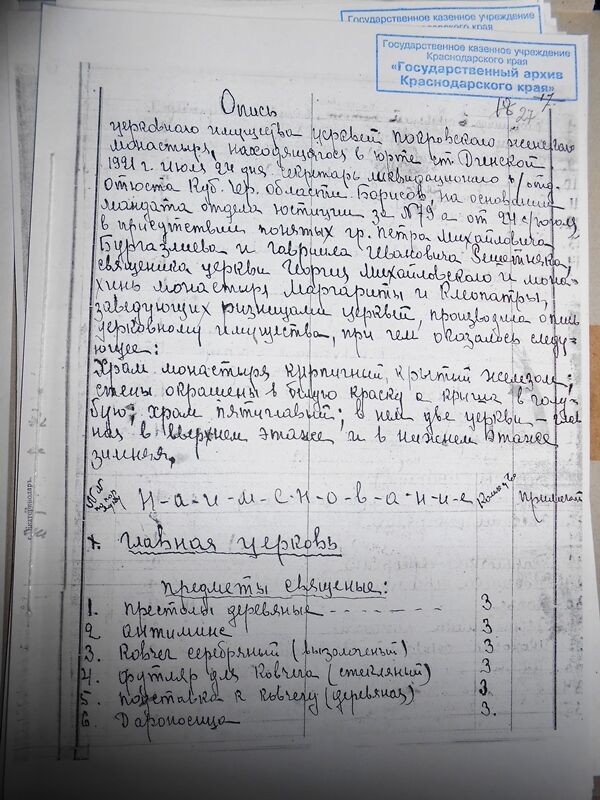 Государственное казенное учреждение
Краснодарского края
«Государственный архив
Краснодарского края»
17.
27
Опись
церковного имущества церквей покровского женского
монастыря, находящегося в юрте ст. Динской
1921 г. Июля 24 дня секретарь ликвидационного п/отд.
Отюста Куб. Чер. области Борисов, на основании
мандата отдела юстиции за №79 а от 24 с/года,
в присутствии понятых гр. Петра Михайловича
Бургазлиева и Гавриила Ивановича Решетняка,
священика церкви Георгия Михайловского и мона-
хинь монастыря Маргариты и Клеопатры,
заведующих ризницами церквей, производила опись
церковному имущества, при чем оказалось следу-
ющее:
Храм монастыря кирпичний, крытий железом;
стены окрашены в белую краску а крыша в голу-
бую; храм пятиглавий; в нем две церкви – глав
ная в верхнем этаже и в нижнем этаже
зимняя.
№№
по пор
Н-а-и-м-е-н-о-в-а-н-и-е
Колич.
Примечан
Главная церковь
Предметы священые:
1. Престолы деревяные - - - - - - - 3
2 Антиминс 3
3. Ковчег серебряный (вызолоченый) 3
4. Футляр для Ковчега (стекляный) 3
5. подставка к ковчегу (деревяная) 3.
6 Дароносица 3.